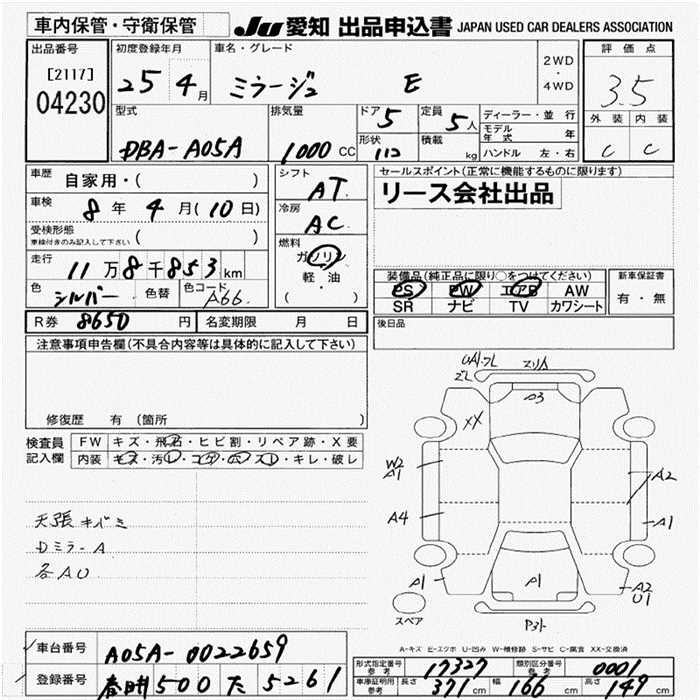 車内保管・守衛保管
JU 愛知 出品申込書 JAPAN USED CAR DEALERS ASSOCIATION
出品番号
[2117]
04230
初度登録年月
25 4月
車名・グレード
ミラージュ E
2WD
・
4WD
評価点
3.5
外装 内装
C C
型式
DBA-A05A
排気量
1000 CC
ドア
5
形状
定員
5人
積載
kg
ディーラー・並行
モデル年式 年
ハンドル 左・右
車歴 自家用・( )
車検 8年 4月(10日)
受検形態
車検付きのみ記入して下さい ( )
走行 11万8千853km
色 シルバー 色替 色コード A66
シフト
AT
冷房
AC
燃料
ガソリン
軽・油
( )
セールスポイント(正常に機能するものに限ります)
リース会社出品
装備品(純正品に限り○をつけてください)
PS PW エアB AW
SR ナビ TV カワシート
新車保証書
有・無
R券 8650円 名変期限 月 日
後日品
注意事項申告欄(不具合内容等は具体的に記入して下さい)
修復歴 有(箇所 )
検査員
記入欄
FW キズ・飛石・ヒビ割・リペア跡・X要
内装 キズ・汚レ・コゲ・穴・スレ・キレ・破レ
天張キバミ
Dミラ-A
各AU
UA1.フL
スリA
XX
A3
W2
A1
A2
A4
A1
A1
A1
A2
U1
スペア
A-キズ E-エクボ U-凹み W-補修跡 S-サビ C-腐食 XX-交換済
車台番号 A05A-0022659
登録番号 春日井500た5261
形式指定番号
参考
17327
類別区分番号
参考
0001
車庫証明用
参考
長さ 371cm 幅 166cm 高さ 149cm